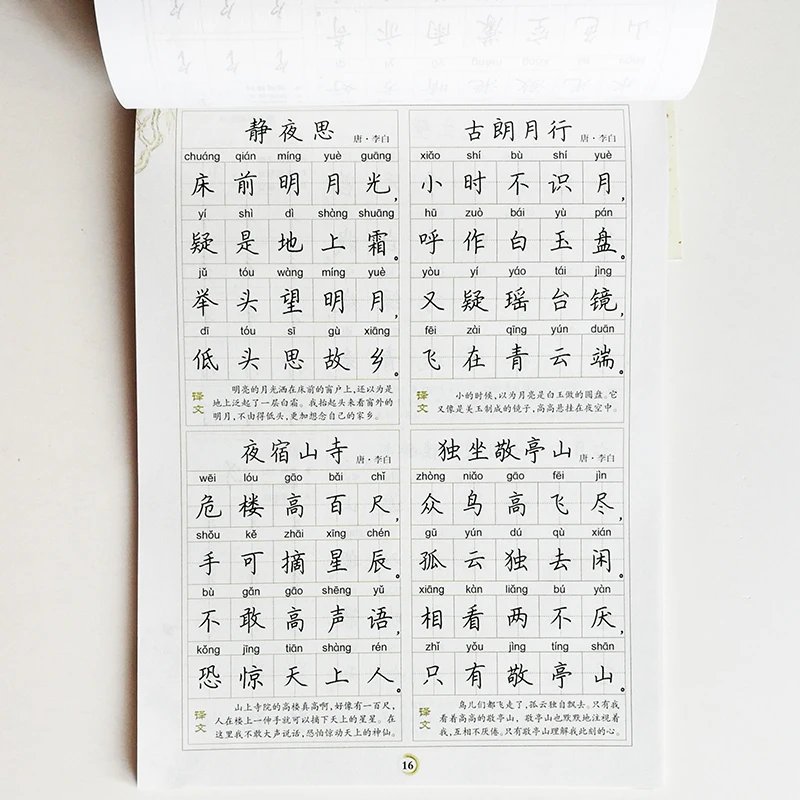 静夜思 唐·李白
chuáng qián míng yuè guāng
床前明月光，
yí shì dì shàng shuāng
疑是地上霜。
jǔ tóu wàng míng yuè
举头望明月，
dī tóu sī gù xiāng
低头思故乡。
译文
明亮的月光洒在床前的窗户上，还以为是
地上泛起了一层白霜。我抬起头来看窗外的
明月，不由得低头，更加想念自己的家乡。
古朗月行 唐·李白
xiǎo shí bù shí yuè
小时不识月，
hū zuò bái yù pán
呼作白玉盘。
yòu yí yáo tái jìng
又疑瑶台镜，
fēi zài qīng yún duān
飞在青云端。
译文
小的时候，以为月亮是白玉做的圆盘。它
又像是美玉制成的镜子，高高悬挂在夜空中。
夜宿山寺 唐·李白
wēi lóu gāo bǎi chǐ
危楼高百尺，
shǒu kě zhāi xīng chén
手可摘星辰。
bù gǎn gāo shēng yǔ
不敢高声语，
kǒng jīng tiān shàng rén
恐惊天上人。
译文
山上寺院的高楼真高啊，好像有一百尺，
人在楼上一伸手就可以摘下天上的星星。在
这里我不敢大声说话，恐怕惊动天上的神仙。
独坐敬亭山 唐·李白
zhòng niǎo gāo fēi jìn
众鸟高飞尽，
gū yún dú qù xián
孤云独去闲。
xiāng kàn liǎng bú yàn
相看两不厌，
zhǐ yǒu jìng tíng shān
只有敬亭山。
译文
鸟儿们都飞走了，孤云独自飘去。只有我
看着高高的敬亭山，敬亭山也默默地注视着
我，互相不厌倦。只有敬亭山理解我此刻的心。
16